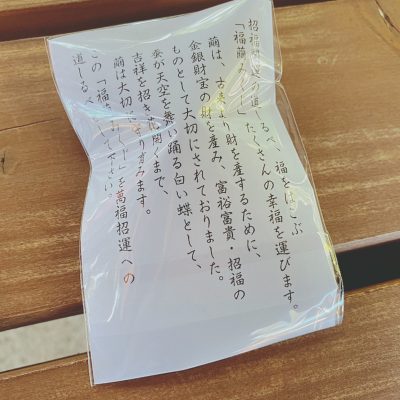 招福開運の道しるべ、福をはこぶ
「福繭みくじ」たくさんの幸福を運びます。
繭は、古来より財を産するために、
金銀財宝の財を産み、富裕富貴・招福の
ものとして大切にされておりました。
蚕が天空を舞い踊る白い蝶として、
吉祥を招き花開くまで、
繭は大切に守り育みます。
この「福みくじ」を萬福招運への
道しるべ